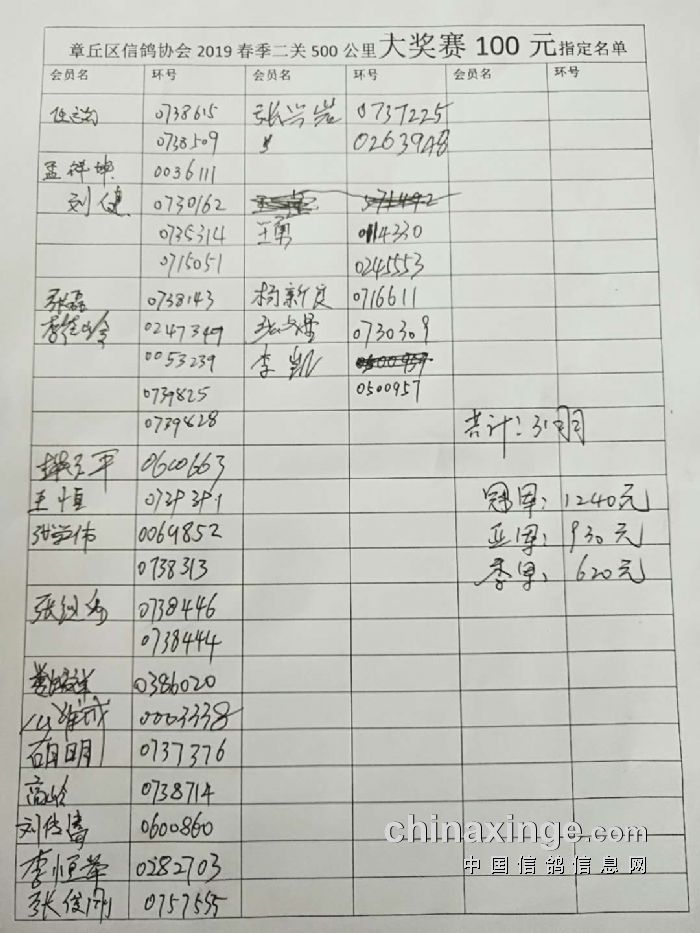 章丘区信鸽协会2019春季二关500公里大奖赛100元指定名单
会员名 环号 会员名 环号 会员名 环号
0738615 张兴岩 0737225
0738509 〃 0263948
孟祥坤 0036111
刘健 0730162
0735314 王勇 0114330
0715051 0245553
张磊 0738143 杨新文 0716611
0247349 0730309
0053239 李凯
0739825 0500957
0739828 共计:31羽
0600663
王恒
张学伟 0069852 冠军:1240元
0738313 亚军:930元
季军:620元
0738446
0738444
0386020
0003338
0737376
高岭 0738714
刘传涛 0600860
李恒举 0282703
张俊刚 0757555
chinaxinge.com
中国信鸽信息网